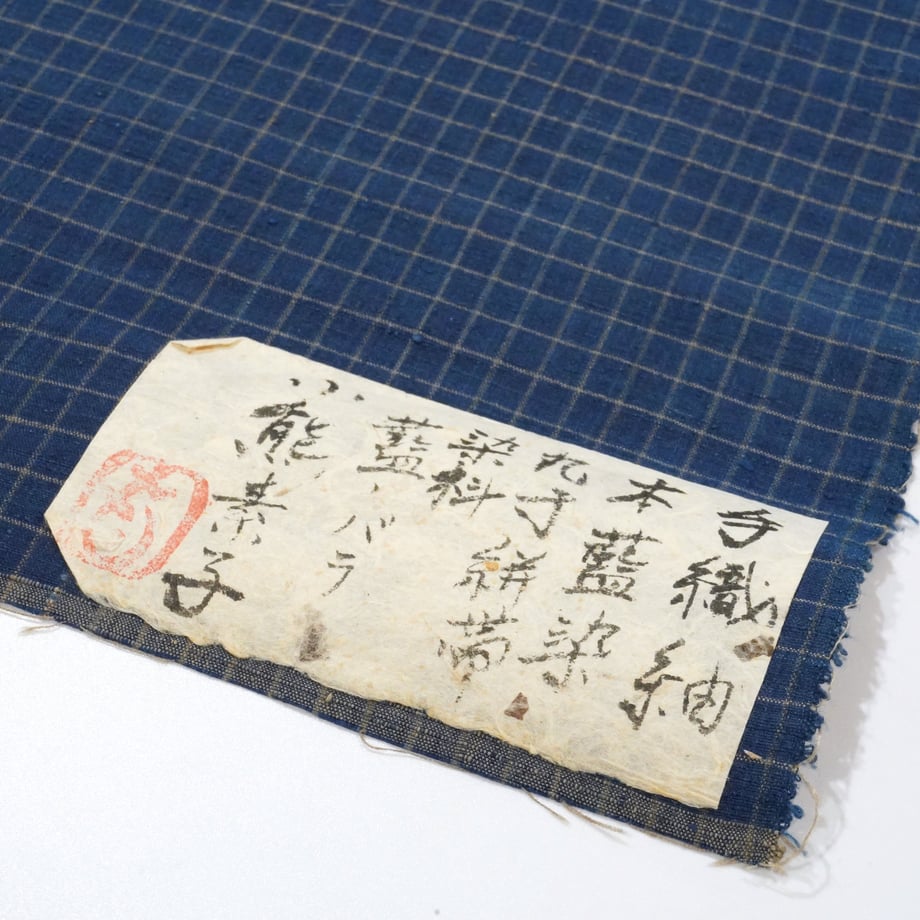 手織り紬
本藍染
九寸絣帯
染料
藍、バラ
小熊素子